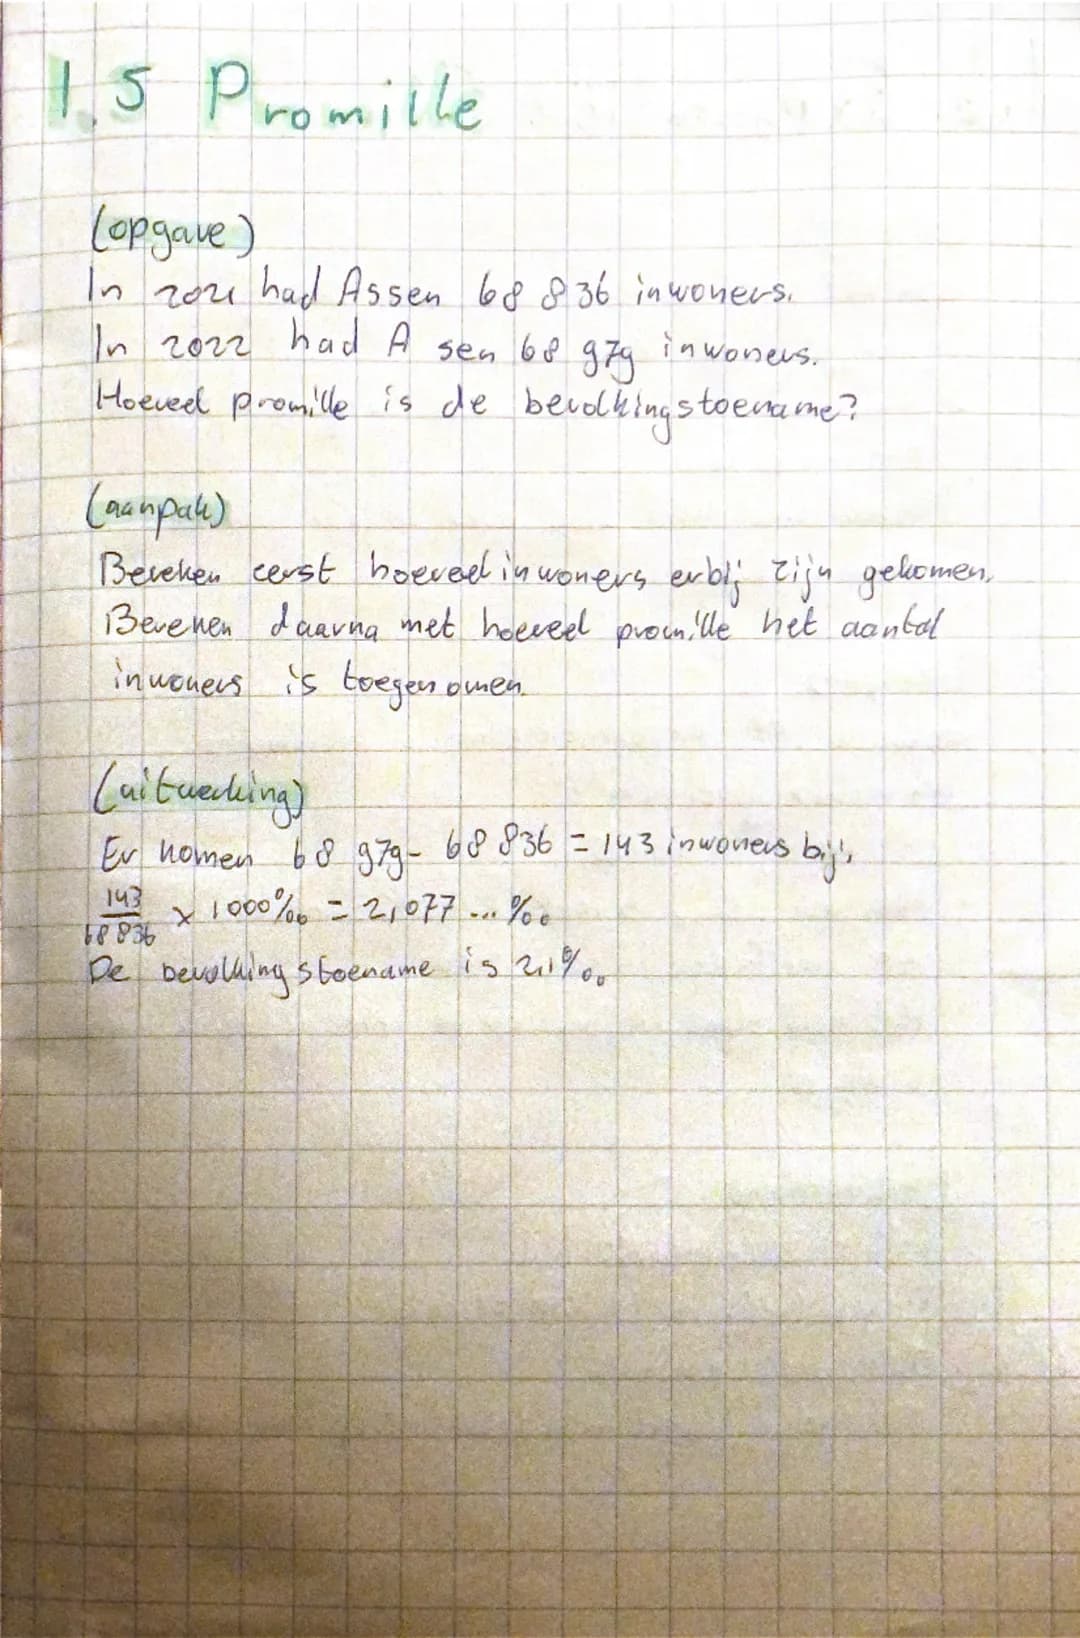 1.5 Promille
(opgave)
In 2021 had Assen 68 836 inwoners.
In 2022 had A sen 68 979 inwoners.
Hoeveel promille is de bevolkingstoename?
(aanpak)
Bereken eerst hoeveel inwoners erbij zijn gekomen.
Bereken daarna met hoeveel promille het aantal
inwoners is toegenomen.
(uitwerking)
Er komen 68 979 - 68 836 = 143 inwoners bij.
143/68 836 × 1000‰ = 2,077...‰
De bevolkingstoename is 2,1‰